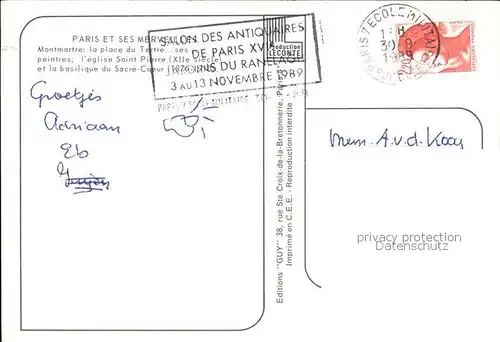 PARIS ET SES MERVEILLES
Montmartre: la place du Tertre, ses
peintres; l'église Saint Pierre (XIIe siècle)
et la basilique du Sacré-Coeur
SALON DES ANTIQUAIRES
DE PARIS XVI
JARDINS DU RANELAGH
3 AU 13 NOVEMBRE 1989
Production
LECONTE
PARIS 7 ECOLE MILITAIRE
17H
30
1989
2,20
Groetjes
Adriaan
Mem. A.v.d. Kooy
Editions "GUY" 38, rue Ste Croix-de-la-Bretonnerie, Paris
Imprimé en C.E.E. - Reproduction interdite -
privacy protection
Datenschutz